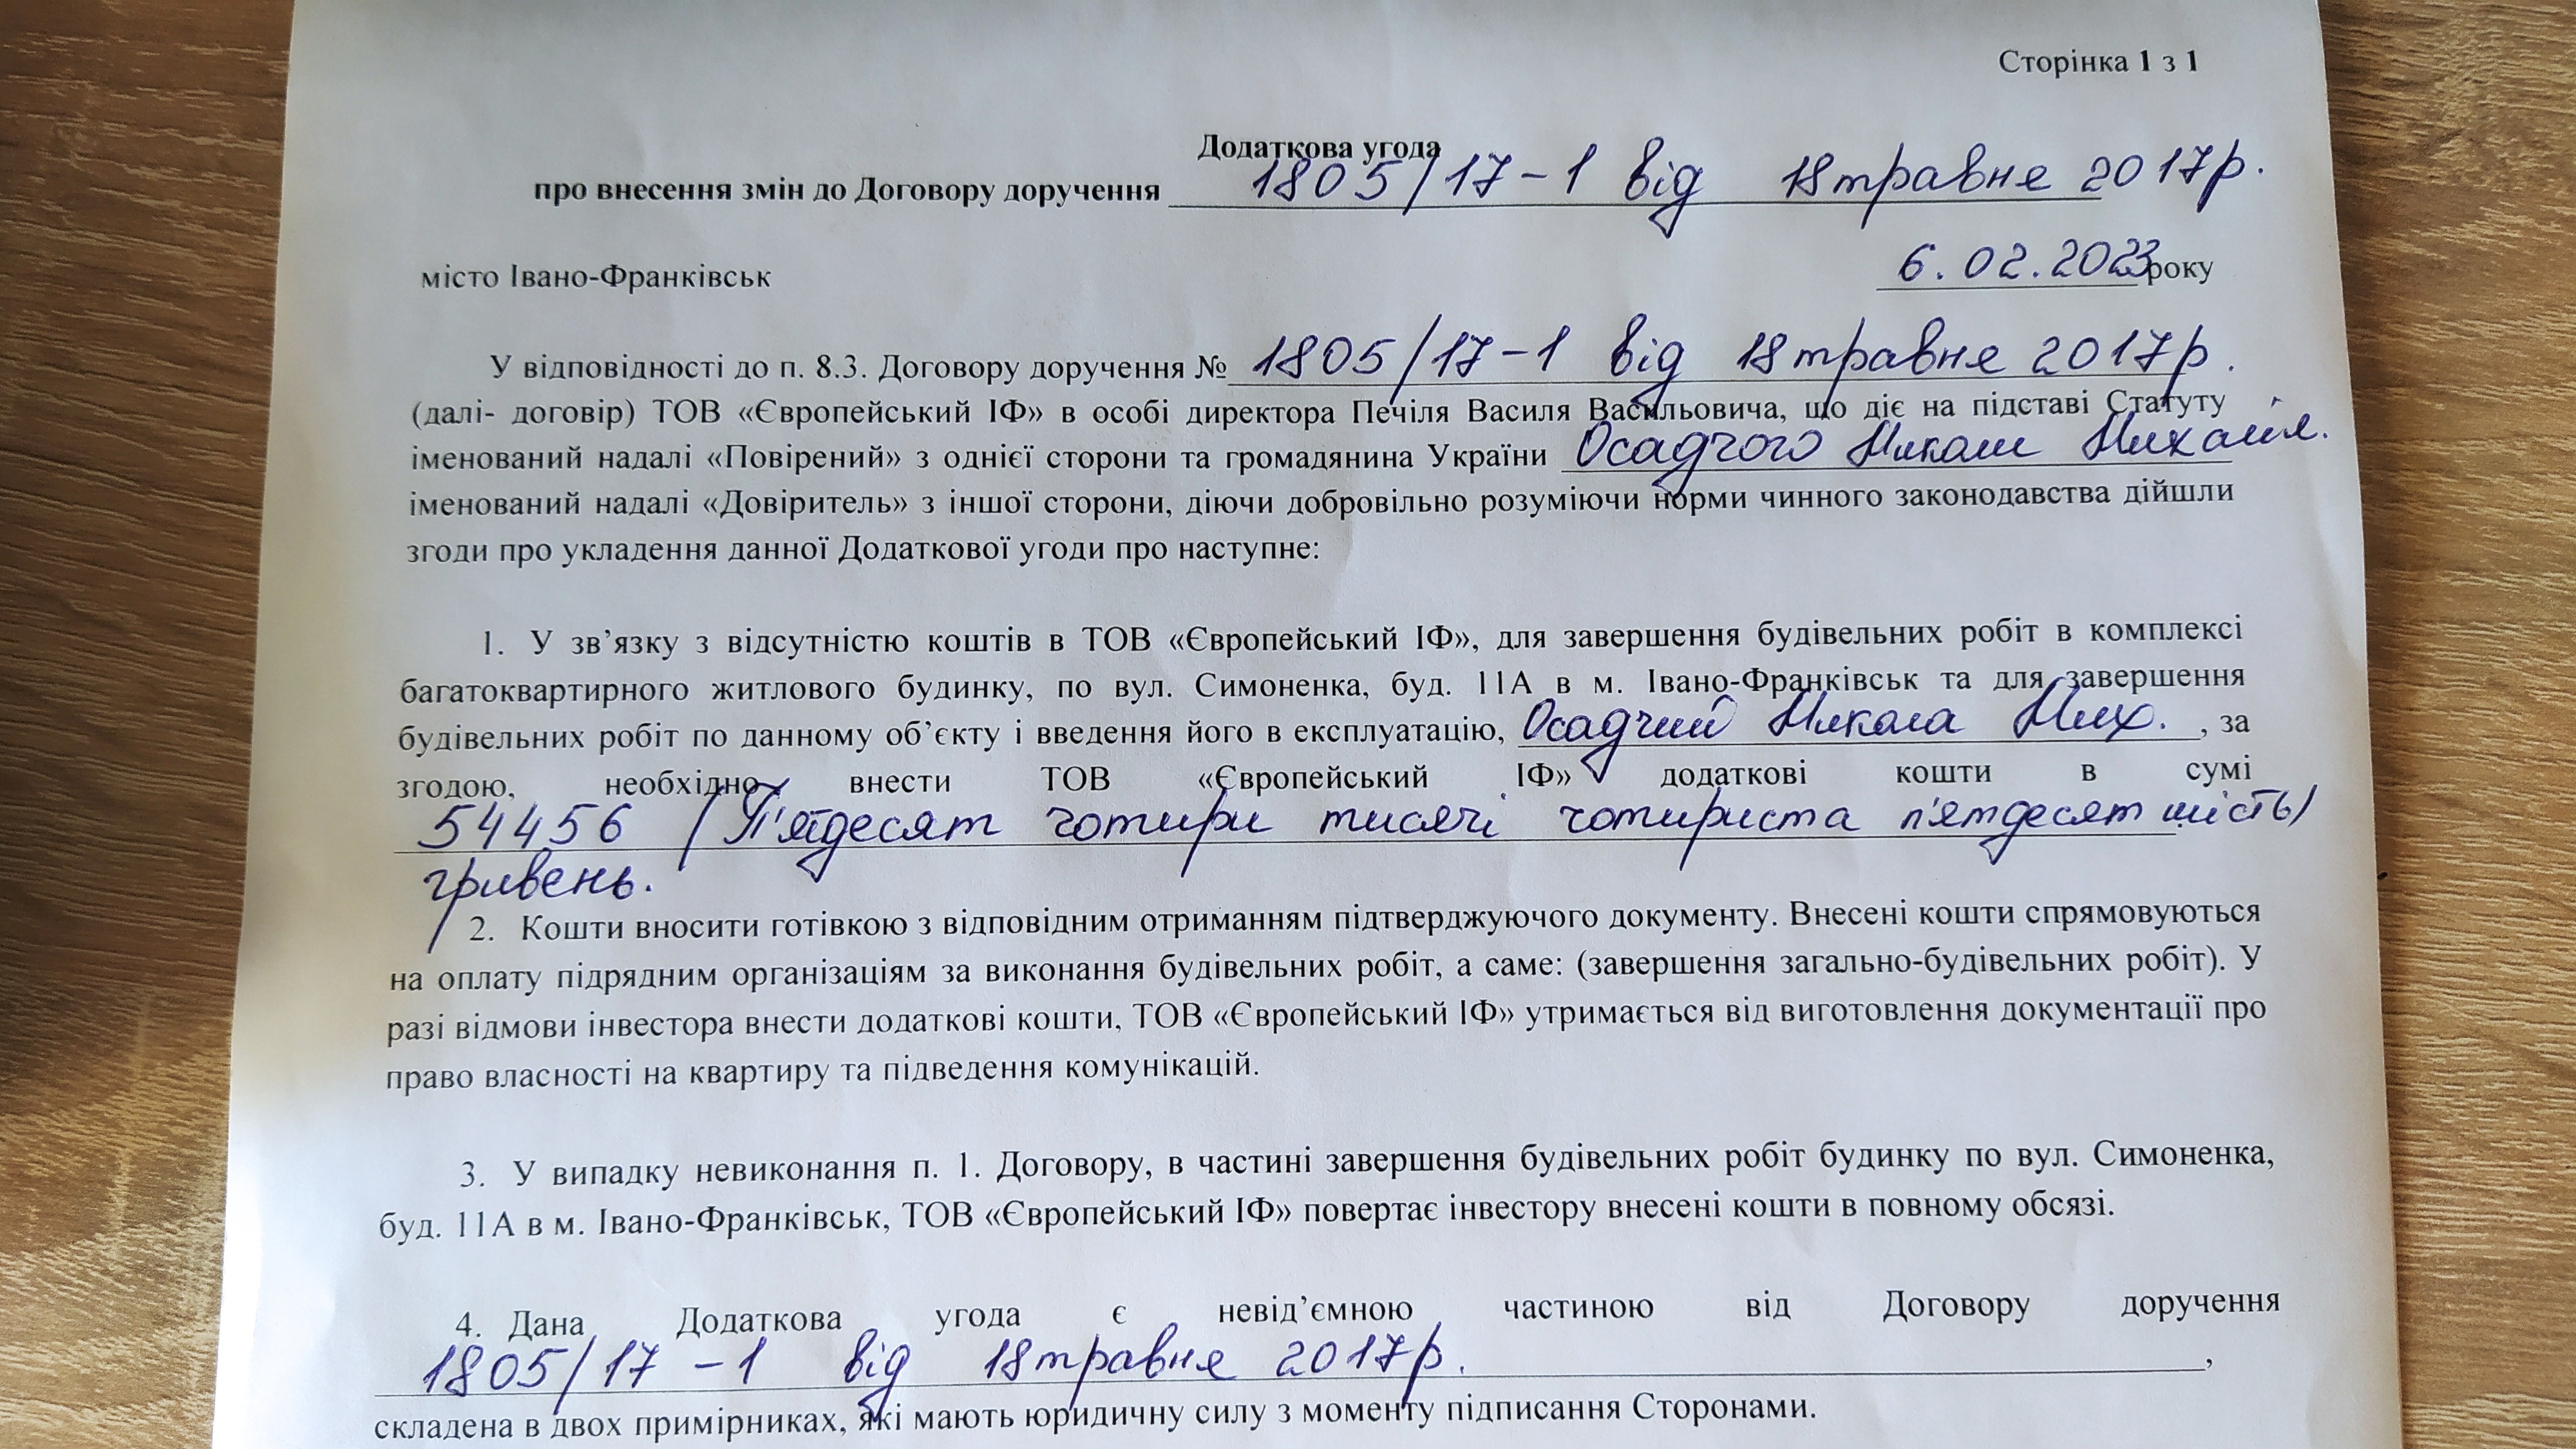 Сторінка 1 з 1
Додаткова угода
про внесення змін до Договору доручення 1805/17-1 від 18 травня 2017р.
місто Івано-Франківськ 6.02.2023 року
У відповідності до п. 8.3. Договору доручення № 1805/17-1 від 18 травня 2017р.
(далі- договір) ТОВ «Європейський ІФ» в особі директора Печіля Василя Васильовича, що діє на підставі Статуту
іменований надалі «Повірений» з однієї сторони та громадянина України Осадчого Миколи Михайл.
іменований надалі «Довіритель» з іншої сторони, діючи добровільно розуміючи норми чинного законодавства дійшли
згоди про укладення данної Додаткової угоди про наступне:
1. У зв’язку з відсутністю коштів в ТОВ «Європейський ІФ», для завершення будівельних робіт в комплексі
багатоквартирного житлового будинку, по вул. Симоненка, буд. 11А в м. Івано-Франківськ та для завершення
будівельних робіт по данному об’єкту і введення його в експлуатацію, Осадчий Микола Мих. , за
згодою, необхідно внести ТОВ «Європейський ІФ» додаткові кошти в сумі
54456 /П'ятдесят чотири тисячі чотириста п'ятдесят шість/
гривень.
2. Кошти вносити готівкою з відповідним отриманням підтверджуючого документу. Внесені кошти спрямовуються
на оплату підрядним організаціям за виконання будівельних робіт, а саме: (завершення загально-будівельних робіт). У
разі відмови інвестора внести додаткові кошти, ТОВ «Європейський ІФ» утримається від виготовлення документації про
право власності на квартиру та підведення комунікацій.
3. У випадку невиконання п. 1. Договору, в частині завершення будівельних робіт будинку по вул. Симоненка,
буд. 11А в м. Івано-Франківськ, ТОВ «Європейський ІФ» повертає інвестору внесені кошти в повному обсязі.
4. Дана Додаткова угода є невід’ємною частиною від Договору доручення
1805/17-1 від 18 травня 2017р. ,
складена в двох примірниках, які мають юридичну силу з моменту підписання Сторонами.